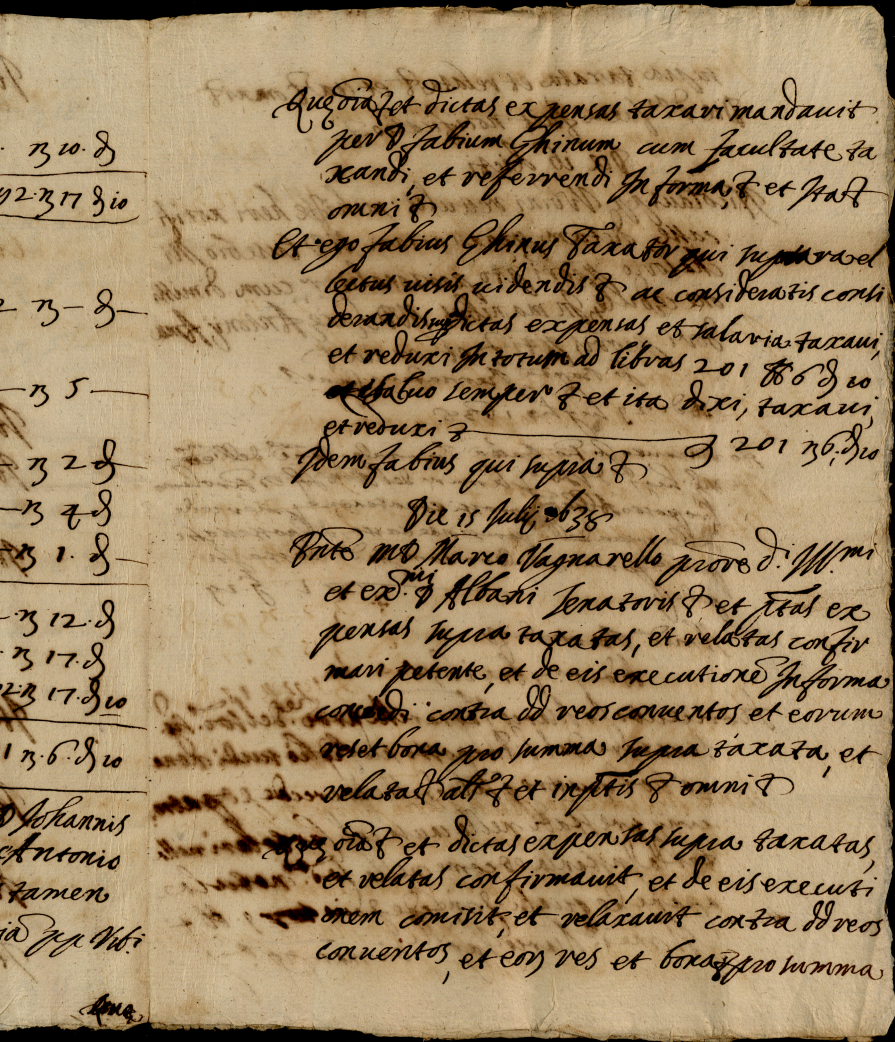 n 10. d
92. n 17 d 10
n — d —
n 5 —
n 2 d
n 4 d
n 1. d
n 12. d
n 17. d
n 17. d 10
1 n. 6. d 10
D Johannis
Antonio
tamen
Que
Que oia & et dictas expensas taxari mandavit
per D Fabium Ghinum cum facultate ta
xandi, et referrendi In forma & et Ita &
omni &
Et ego Fabius Ghinus Taxator qui supra el
lectus visis videndis & ac consideratis consi
derandis dictas expensas et salaria taxavi,
et reduxi In totum ad libras 201 6 d 10
salvo semper & et ita dixi, taxavi,
et reduxi & — 201 n 6. d 10
Idem Fabius qui supra &
Die 15 Julij 1638
Pnte m D Marco Vagnarello prore d. Ill.mi
et ex.mi D Albani senatoris & et ptas ex
pensas supra taxatas, et relatas confir
mari petente, et de eis executione In forma
concedi contra dd reos conventos et eorum
res et bona pro summa supra taxata, et
relata & alr & et in ptis & omni &
Que oia & et dictas expensas supra taxatas,
et relatas confirmavit, et de eis executi
onem comisit, et relaxavit contra dd reos
conventos, et eor res et bona & pro summa